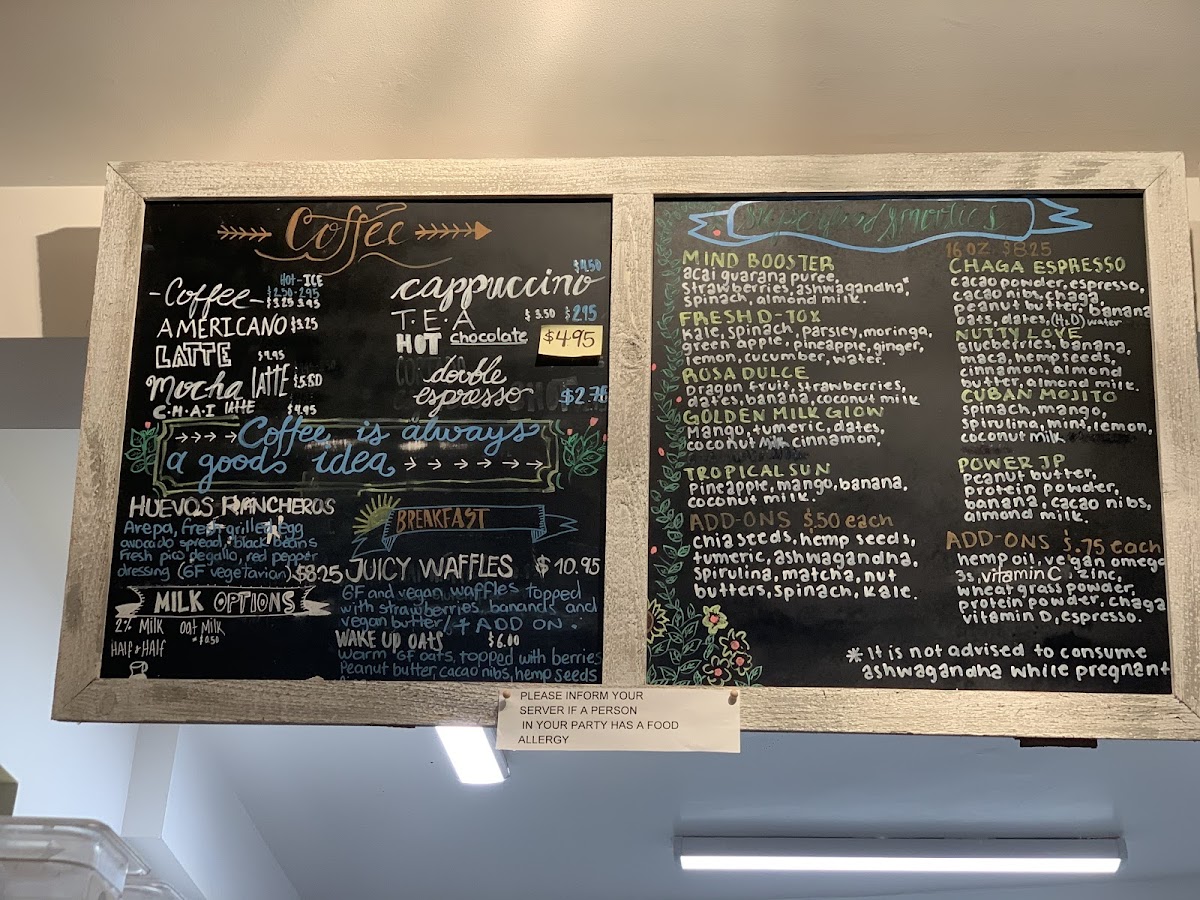 Coffee
HOT - ICE
-Coffee-
$2.50 - 2.95
$3.25 3.95
AMERICANO $3.25
LATTE $4.95
Mocha LATTE $5.50
C.H.A.I LATTE $4.95
$4.50
cappuccino
T.E.A $3.50 $2.95
HOT chocolate $4.95
double
espresso $2.75
→→→ Coffee is always
a good idea →→→→→→
HUEVOS RANCHEROS
Arepa, fresh grilled egg
avocado spread, black beans
Fresh pico degallo, red pepper
dressing (GF vegetarian) $8.25
MILK OPTIONS
2% Milk Oat Milk
+$0.50
HALF & HALF
BREAKFAST
JUICY WAFFLES $10.95
GF and vegan waffles topped
with strawberries, bananas and
vegan butter/+ ADD ON.
WAKE UP OATS $6.00
Warm GF oats, topped with berries
Peanut butter, cacao nibs, hemp seeds
Superfood Smoothies
MIND BOOSTER
acai guarana puree,
strawberries, ashwagandha*,
spinach, almond milk.
FRESH D-TOX
kale, spinach, parsley, moringa,
green apple, pineapple, ginger,
lemon, cucumber, water.
ROSA DULCE
dragon fruit, strawberries,
dates, banana, coconut milk
GOLDEN MILK GLOW
Mango, tumeric, dates,
coconut milk cinnamon,
TROPICAL SUN
pineapple, mango, banana,
coconut milk.
ADD-ONS $.50 each
chia seeds, hemp seeds,
tumeric, ashwagandha,
spirulina, matcha, nut
butters, spinach, kale.
16 OZ $8.25
CHAGA ESPRESSO
cacao powder, espresso,
cacao nibs, chaga,
peanut butter, banana
oats, dates, (H2O) water
NUTTY LOVE
blueberries, banana,
maca, hemp seeds,
cinnamon, almond
butter, almond milk.
CUBAN MOJITO
spinach, mango,
spirulina, mint, lemon,
coconut milk
POWER JP
peanut butter,
protein powder,
banana, cacao nibs,
almond milk.
ADD-ONS $.75 each
hemp oil, vegan omega
3s, vitamin C, zinc,
wheat grass powder,
protein powder, chaga
vitamin D, espresso.
* It is not advised to consume
ashwagandha while pregnant
PLEASE INFORM YOUR
SERVER IF A PERSON
IN YOUR PARTY HAS A FOOD
ALLERGY